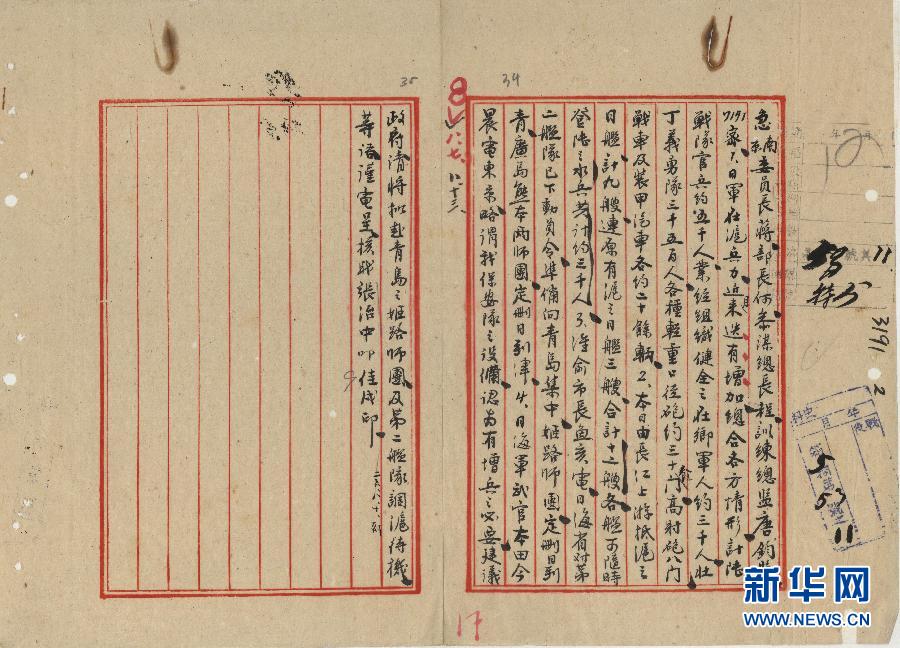 34
35
8
八、七、八十三
急南京委員長蔣部長何參謀總長程訓練總監唐鈞鑒
7191密、1、日軍在滬兵力近來迭有增加總合各方情形計陸
戰隊官兵約五千人業經組織健全之在鄉軍人約三千人壯
丁義勇隊三千五百人各種輕重口徑砲約三十門高射砲八門
戰車及裝甲汽車各約二十餘輛2、本日由長江上游抵滬之
日艦計九艘連原有滬之日艦三艘合計十二艘各艦可隨時
登陸之水兵共計約三千人3、淮俞市長魚亥電日海省對第
二艦隊已下動員令準備向青島集中姬路師團定刪日到
青廣島熊本兩師團定刪日到津4、日海軍武官本田今
晨電東京略謂我保安隊之設備認為有增兵之必要建議
政府請將擬赴青島之姬路師團及第二艦隊調滬待機
等語謹電呈核職張治中叩佳戌印
11
3191
2
5
53
11
17
新华网
WWW.NEWS.CN